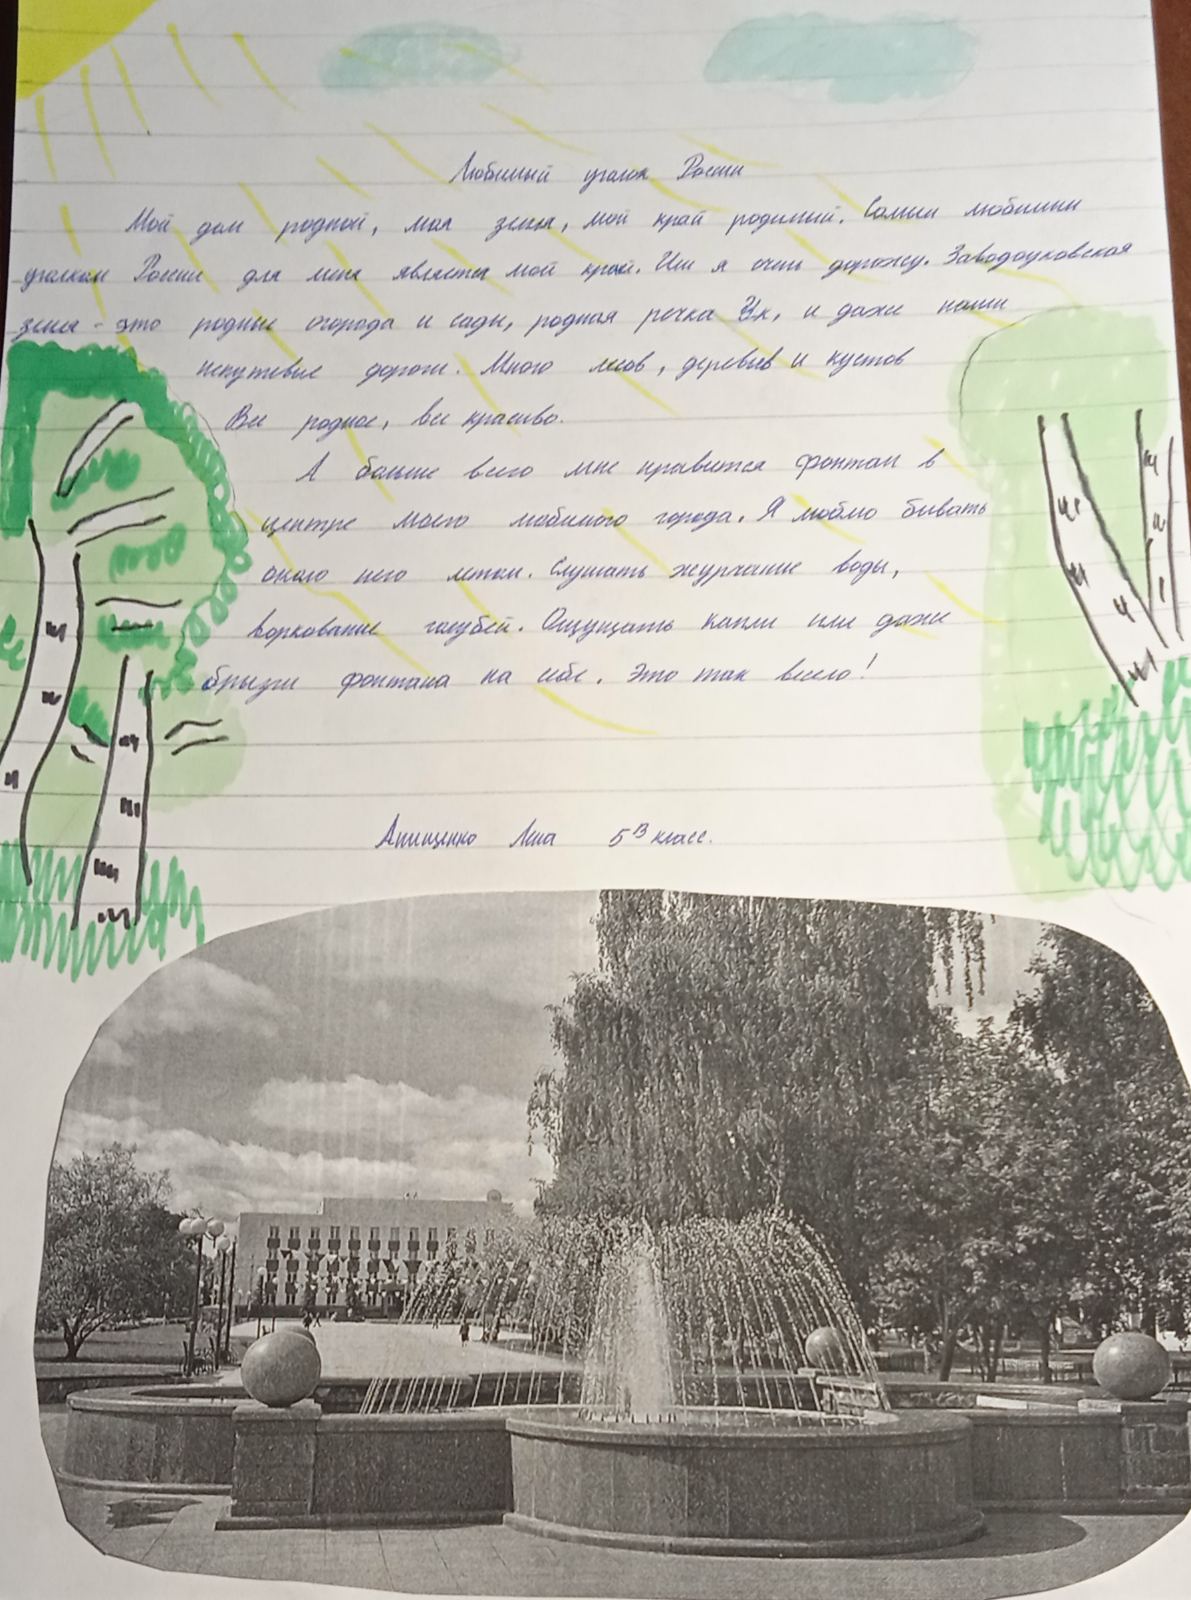 Любимый уголок России
Мой дом родной, моя земля, мой край родимый. Самым любимым
уголком России для меня является мой край. Им я очень дорожу. Заводоуковская
земля - это родные огорода и сады, родная речка Ук, и даже наши
непутевые дороги. Много лесов, деревьев и кустов
Все родное, все красиво.
А больше всего мне нравится фонтан в
центре моего любимого города. Я люблю бывать
около него летом. Слушать журчание воды,
воркование голубей. Ощущать капли или даже
брызги фонтана на себе. Это так весело!
Анищенко Лена 5В класс.